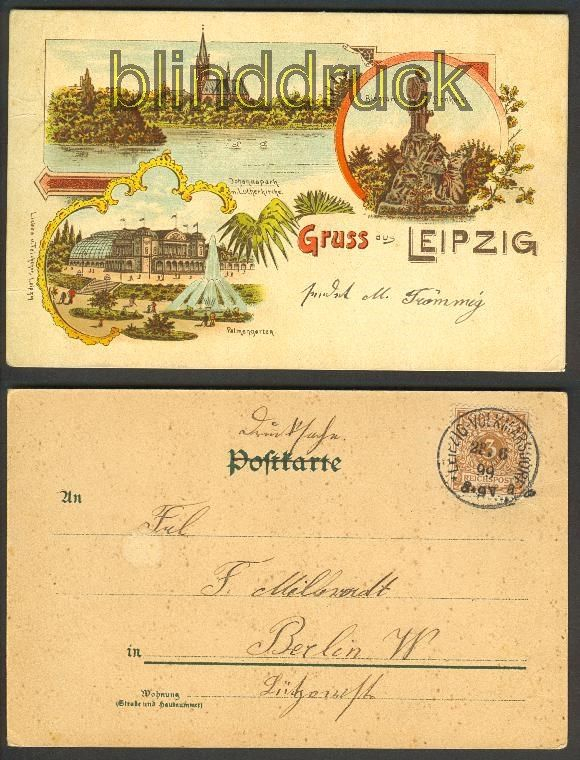 blinddruck
Johannapark
m. Lutherkirche.
Palmengarten
Gruss aus LEIPZIG
sendet M. Frömmig
Drucksache.
Postkarte
LEIPZIG-VOLKMARSDORF
6
99
8-9V.
3
REICHSPOST
An
Frl
F. Milbradt
in Berlin W
Lützowstr
Wohnung
(Straße und Hausnummer)